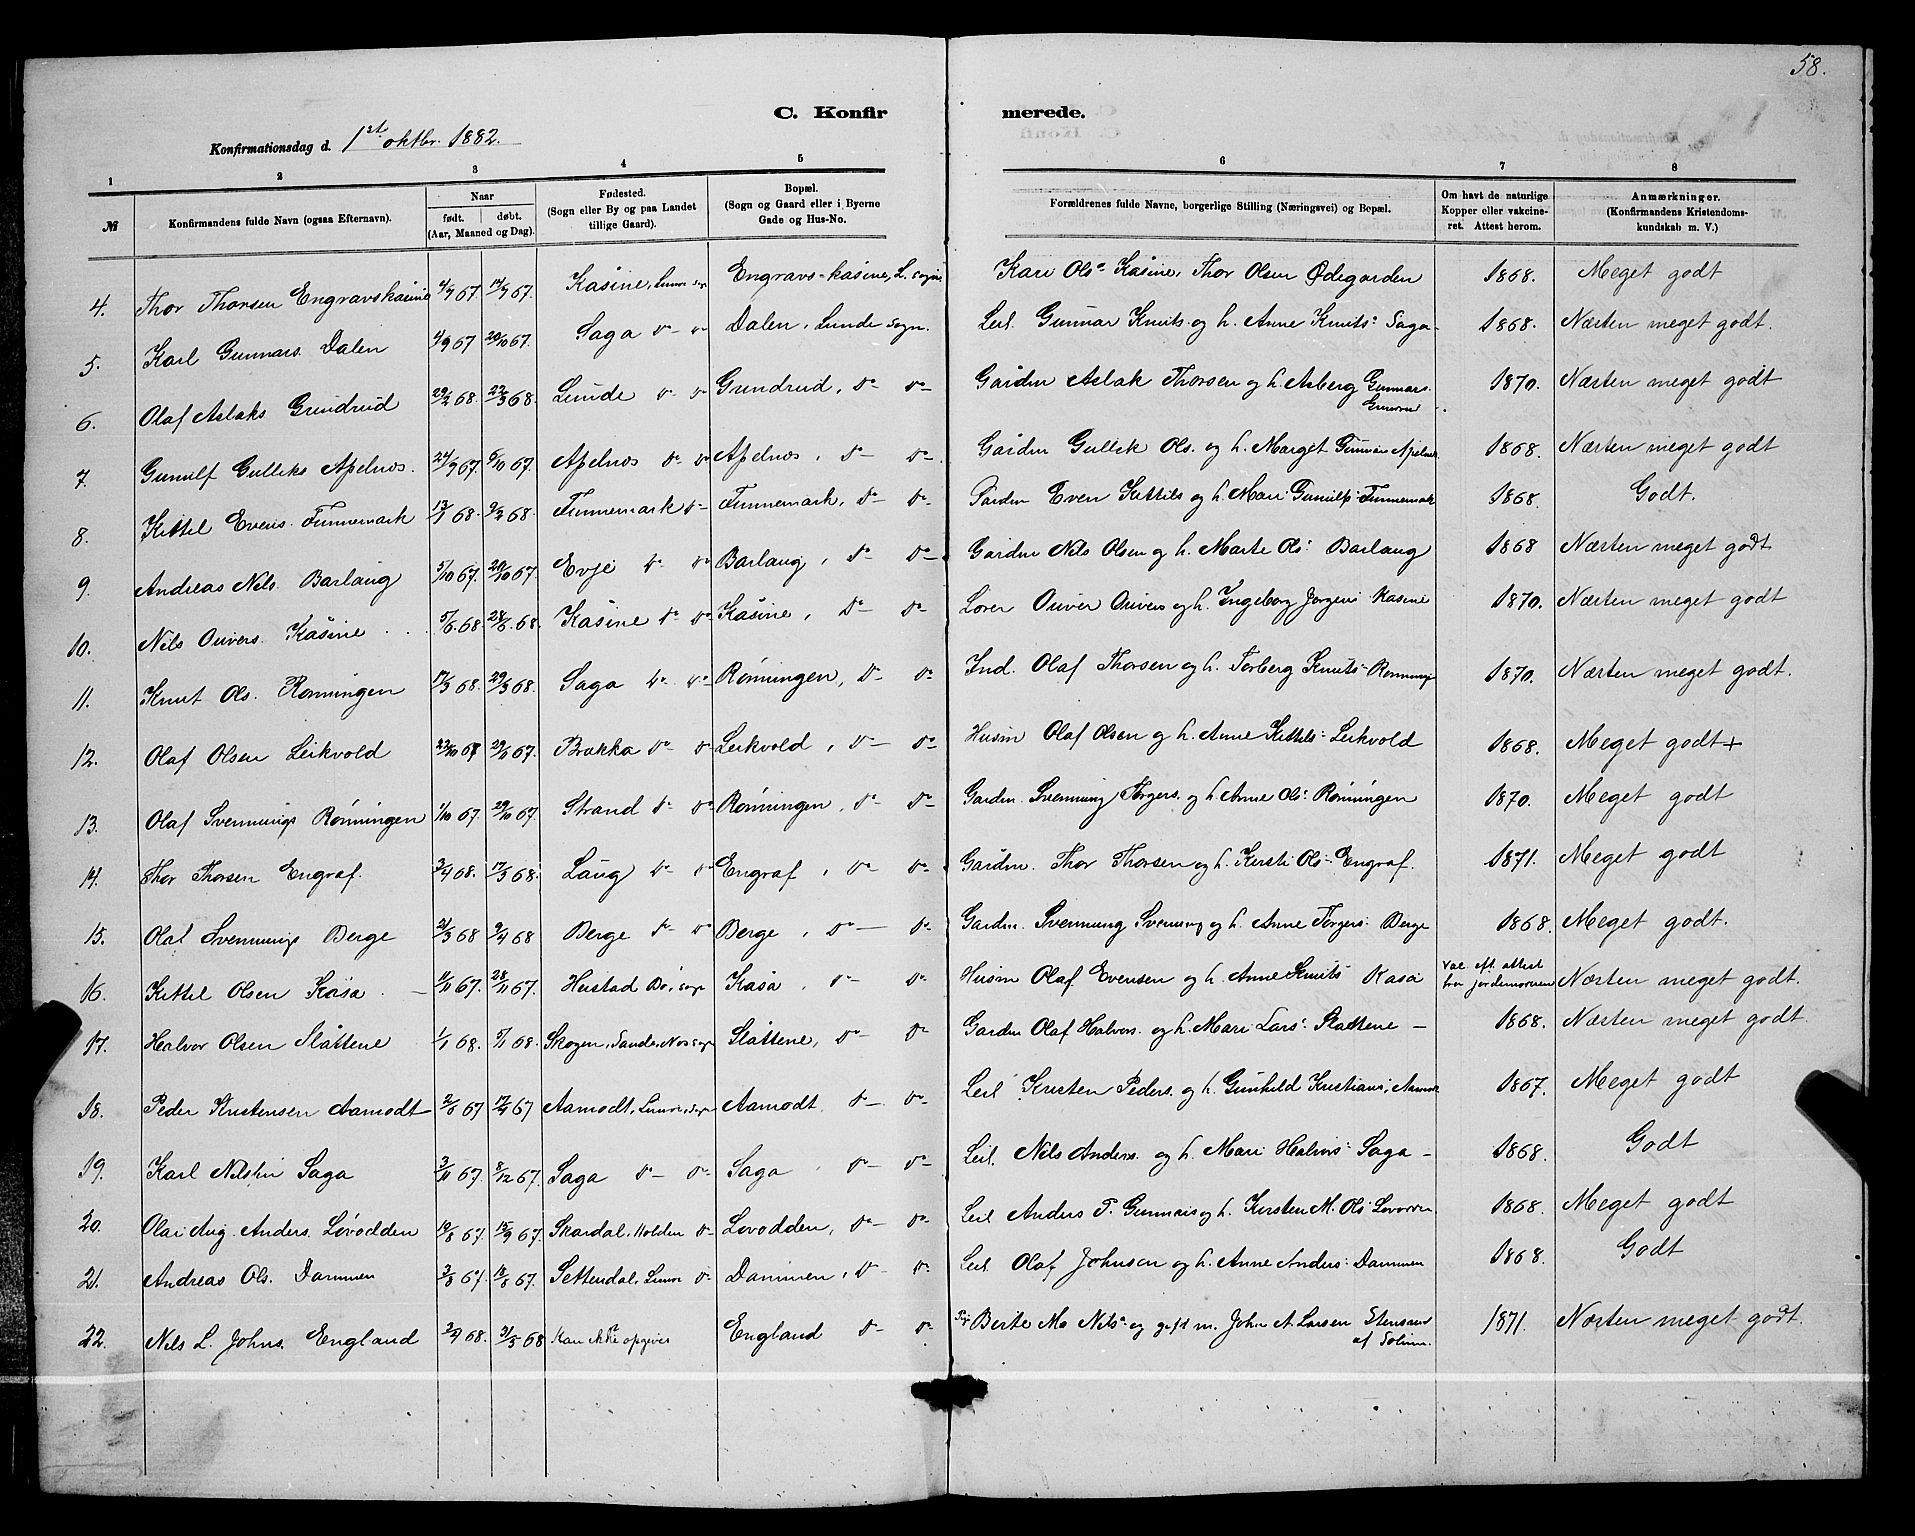 58.
C. Konfirmerede.
Konfirmationsdag d. 1st oktbr. 1882.
1 2 3 4 5 6 7 8
№ Konfirmandens fulde Navn (ogsaa Efternavn). Naar født. døbt. (Aar, Maaned og Dag). Fødested. (Sogn eller By og paa Landet tillige Gaard). Bopæl. (Sogn og Gaard eller i Byerne Gade og Hus-No. Forældrenes fulde Navne, borgerlige Stilling (Næringsvei) og Bopæl. Om havt de naturlige Kopper eller vakcineret. Attest herom. Anmærkninger. (Konfirmandens Kristendomskundskab m. V.)
4. Thor Thorsen Engravskåsine 4/7 67. 14/7 67. Kåsine, Lunde sogn Engravs-kåsine, L. sogn Kari Olsa Kåsine, Thor Olsen Ødegarden 1868. Meget godt
5. Karl Gunnars. Dalen 4/9 67 20/10 67. Saga do do Dalen, Lunde sogn. Leil. Gunnar Knuts. og h. Anne Knuts: Saga 1868. Næsten meget godt.
6. Olaf Aslaks Grundrud 29/2 68. 22/3 68. Lunde do do Grundrud, do do Gårdm Aslak Thorsen og h. Asberg Gunnars. 1870. Næsten meget godt
7. Gunulf Gulleks Apelnæs. 24/9 67. 6/10 67. Apelnæs do do Apelnæs, do do Gårdm Gullek Ols. og h. Marget Gunnars Apelnæs 1868. Næsten meget godt
8. Kittel Evens. Funnemark 13/1 68. 9/2 68. Funnemark do Funnemark, do do Gårdm Even Kittils og h. Mari Gunulfs: Funnemark 1868. Godt.
9. Andreas Nils. Barlaug 5/10 67. 20/10 67. Evje do do Barlaug, do do Gardm Nils Olsen og h. Marte Ols: Barlaug 1868 Næsten meget godt
10. Nils Ouvers. Kåsine 5/6. 68. 28/6. 68. Kåsine do do Kåsine, do do Ouver Ouvers og h. Ingeborg Jørgens Kåsine 1870. Næsten meget godt
11. Knut Ols. Rønningen 17/3 68. 29/3 68. Saga do do Rønningen, do do Ind. Olaf Thorsen og h. Torberg Knuts: Rønning 1870. Næsten meget godt.
12. Olaf Olsen Leikvold 22/10 67 29/11 67. Bakka do do Leikvold, do do Husm Olaf Olsen og h. Anne Kittils: Leikvold 1868. Meget godt+
13. Olaf Svennungs Rønningen 1/10 67. 29/10 67. Strand do do Rønningen, do do Gardm. Svennung Torgers. og h. Anne Ols: Rønningen 1870. Meget godt
14. Thor Thorsen Engraf. 3/4 68. 17/5 68. Laug do do Engraf, do do Gårdm. Thor Thorsen og h. Kirsti Ols: Engraf. 1871. Meget godt
15. Olaf Svennungs Berge 21/3 68 9/4 68 Berge do do Berge, do do Gardm. Svennung Svennung og h. Anne Torgers: Berge 1868. Meget godt.
16. Kittil Olsen Kåsa. 11/11 67. 28/11 67. Heistad Bø, sogn Kåsa, do do Husm Olaf Evensen og h. Anne Knuts Kåsa Vac. eft. attest fra jordemoren Næsten meget godt.
17. Halvor Olsen Slåttene 1/1 68. 5/1 68. Skogen, Sande, Næs sogn Slåttene, do do Gardm Olaf Halvors. og h. Mari Lars: Slattene 1868. Næsten meget godt
18. Peder Kristensen Aamodt 2/6 67 17/4 67 Aamodt, Lunde, sogn Aamodt. do do Leil Kristen Peders. og h. Gunhild Kristians: Aamodt 1867. Meget godt
19. Karl Nilsen Saga 3/11 67. 8/12 67. Saga do do Saga, do do Leil. Nils Anders. og h. Mari Halvors: Saga 1868. Godt
20. Olai Aug. Anders. Løvodden 10/8 67. 15/9 67. Skardal, Holden do Løvodden, do do Leil Anders P. Gunnars og h. Kirsten M. Ols: Løvodden 1868. Meget godt
21. Andreas Ols. Dammen 3/8 67. 18/8 67. Settendal, Lunde do Dammen, do do Leil. Olaf Johnsen og h. Anne Anders: Dammen 1868. Godt
22. Nils L. Johns. England 2/4 68. 31/5 68 Kan ikke opgives England do do Pig Berte M. Nilsa og gift m. John A Larsen Stensrud af Solum. 1871. Næsten meget godt.